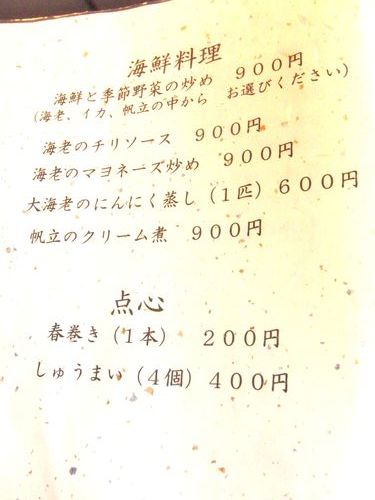 海鮮料理
海鮮と季節野菜の炒め ９００円
（海老、イカ、帆立の中から お選びください）
海老のチリソース ９００円
海老のマヨネーズ炒め ９００円
大海老のにんにく蒸し（１匹）６００円
帆立のクリーム煮 ９００円
点心
春巻き（１本） ２００円
しゅうまい（４個）４００円